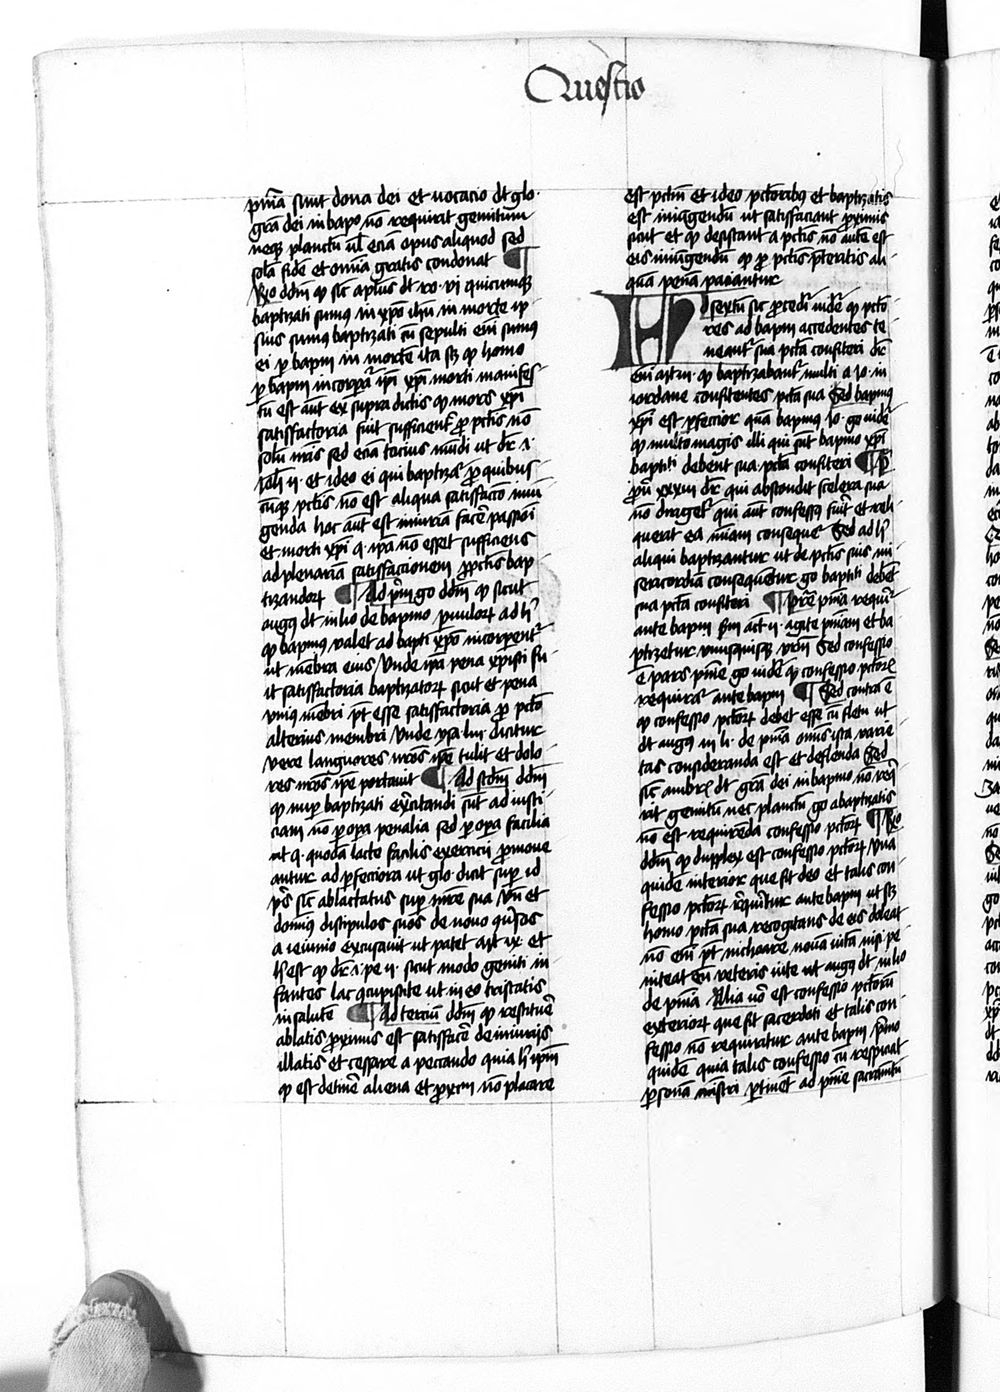 Questio
pnīa sunt dona dei et uocacio dt glo·
grā dei in bapo nō requirit gemitum
neqꝫ planctū ul̄ eciā opus aliquod sed
solā fidē et omīa gratis condonat ¶
Rꝰo dd̄m ꝙ sic aplus dt ro· vi quicumqꝫ
baptizati sumus in xp̄o ih̄u in morte ip̄
sius sumus baptizati cū sepulti eni sumus
ei ꝑ bapm in mortē ita sꝫ ꝙ homo
ꝑ bapm incorpāt̄ ip̄i xp̄i morti manifes
tū est aūt ex supra dictis ꝙ mors xp̄i
satisfactoria fuit sufficient̄ ꝓ pctis nō
solū nr̄is sed eciā tocius mūdi ut dr̄ ·i·
ioh̄ ii· et ideo ei qui baptizat̄ ꝓ quibus
cūqꝫ pctis nō est aliqua satisfactō iniū
genda hoc aūt est iniuriā facē passiōi
et morti xp̄i q· ip̄a nō esset sufficiens
ad plenariā satisfactionem ꝓ pctis bap
tizandoꝝ ¶ Ad pm̄ go dd̄m ꝙ sicut
augꝰ dt in lio de bapmo ꝑuuloꝝ ad h̄
ꝙ bapmus valet ad bapti xp̄o incorpent̄
ut mēbra eius Vnde ip̄a pena xp̄isti fu
it satisfactoria baptizatoꝝ sicut et pena
vniꝰ mēbri pt̄ esse satisfactoria ꝓ pctō
alterius membri Vnde ysa· liii dicitur
vere languores nr̄os ip̄e tulit et dolo
res nr̄os ip̄e portauit ¶ Ad scd̄m dd̄m
ꝙ nup baptizati ex̄citandi sūt ad iusti
ciam nō ꝑ opa penalia sed ꝑ opa facilia
ut q· quodā lacte facilis exercicii ꝓmoue
antur ad ꝑfectiora ut glo· dicit sup id
pˢ sic ablactatus sup mr̄e sua Vn̄ et
domiꝰ discipulos suos de nouo ꝯūsos
a ieiunio excusauit ut patet mt̄ ix et
h̄ est ꝙ dr̄ ·i· pe ii· sicut modo geniti in
fantes lac ꝯcupiscite ut in eo crescatis
in salutē ¶ Ad terciū dd̄m ꝙ restituē
ablatis ꝓximis est satisfacē de iniuriis
illatis et cessare a peccando quia h̄ ip̄m
ꝙ est detinē aliena et ꝓximū nō placare
est pctm̄ et ideo pctoribꝰ et baptizatis
est iniūgendū ut satisfaciant ꝓximis
sicut et ꝙ desistant a pctis nō autē est
eis iniūgendū ꝙ ꝓ pctis pteritis ali
quā penā paciantur
AD sextū sic ꝓcedit̄ uidet̄ ꝙ pctō
res ad bapm accedentes te
neantˀ sua pctā confiteri dr̄
eni mt̄ iii· ꝙ baptizabantˀ multi a io· in
iordane confitentes pctā sua Sed bapmꝰ
xp̄i est ꝑfectior quā bapmꝰ Io· go uidet̄
ꝙ multo magis illi qui sūt bapmo xp̄i
bapti debent sua pctā confiteri ¶ P
puˢ xxviii dr̄ qui abscondit scelera sua
nō dirigetˀ qui aūt confessꝰ fuit̄ et reli
querit ea mīam consequet̄ Sed ad h̄
aliqui baptizantur ut de pctis suis mi
sericordiā consequentur go bapti debēt
sua pctā confiteri ¶ Pr̄e pnīa requirˀ
ante bapm sm̄ act ii· agite pnīam et ba
ptizetur vnusquisqꝫ vr̄m Sed confessio
ē pars pnīe go uidet̄ ꝙ confessio pctoꝝ
requirat̄ ante bapm ¶ Sed contra ē
ꝙ confessio pctoꝝ debet esse cū fletu ut
dt augꝰ in li· de pnīa om̄is ista varie
tas consideranda est et deflenda Sed
sic ambrꝰ dt grā dei in bapmo nō req̄
rit gemitū nec planctū go a baptizatis
nō est requirenda confessio pctoꝝ ¶ Rꝰo
dd̄m ꝙ duplex est confessio pctoꝝ Vna
quidē interior que fit deo et talis con
fessio pctoꝝ r̄quiritur ante bapm ut sꝫ
homo pctā sua recogitans de eis doleat
nō eni pt̄ inchoare nouā uitā nisi pe
niteat eū veteris uite ut augꝰ dt in lio
de pnīa Alia uo est confessio pctorū
exterioꝝ que fit sacerdoti et talis con
fessio nō requiritur ante bapm Primo
quidē quia talis confessio cū respiciat
ꝑsonā mīstri ꝑtinet ad pnīe sacramētū